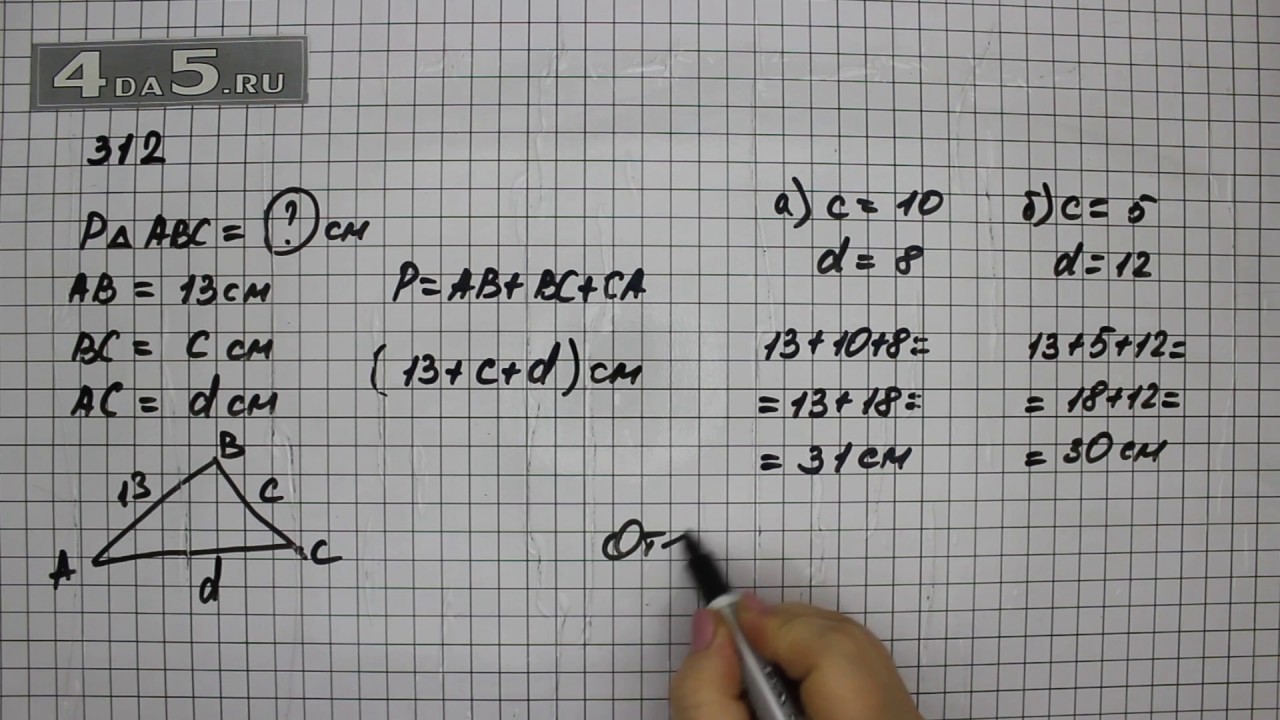 4DA5.RU
312
P△ABC = ? см
AB = 13 см
BC = c см
AC = d см
P = AB + BC + CA
(13 + c + d) см
а) c = 10
d = 8
13 + 10 + 8 =
= 13 + 18 =
= 31 см
б) c = 5
d = 12
13 + 5 + 12 =
= 18 + 12 =
= 30 см
B
13
c
A
C
d
От